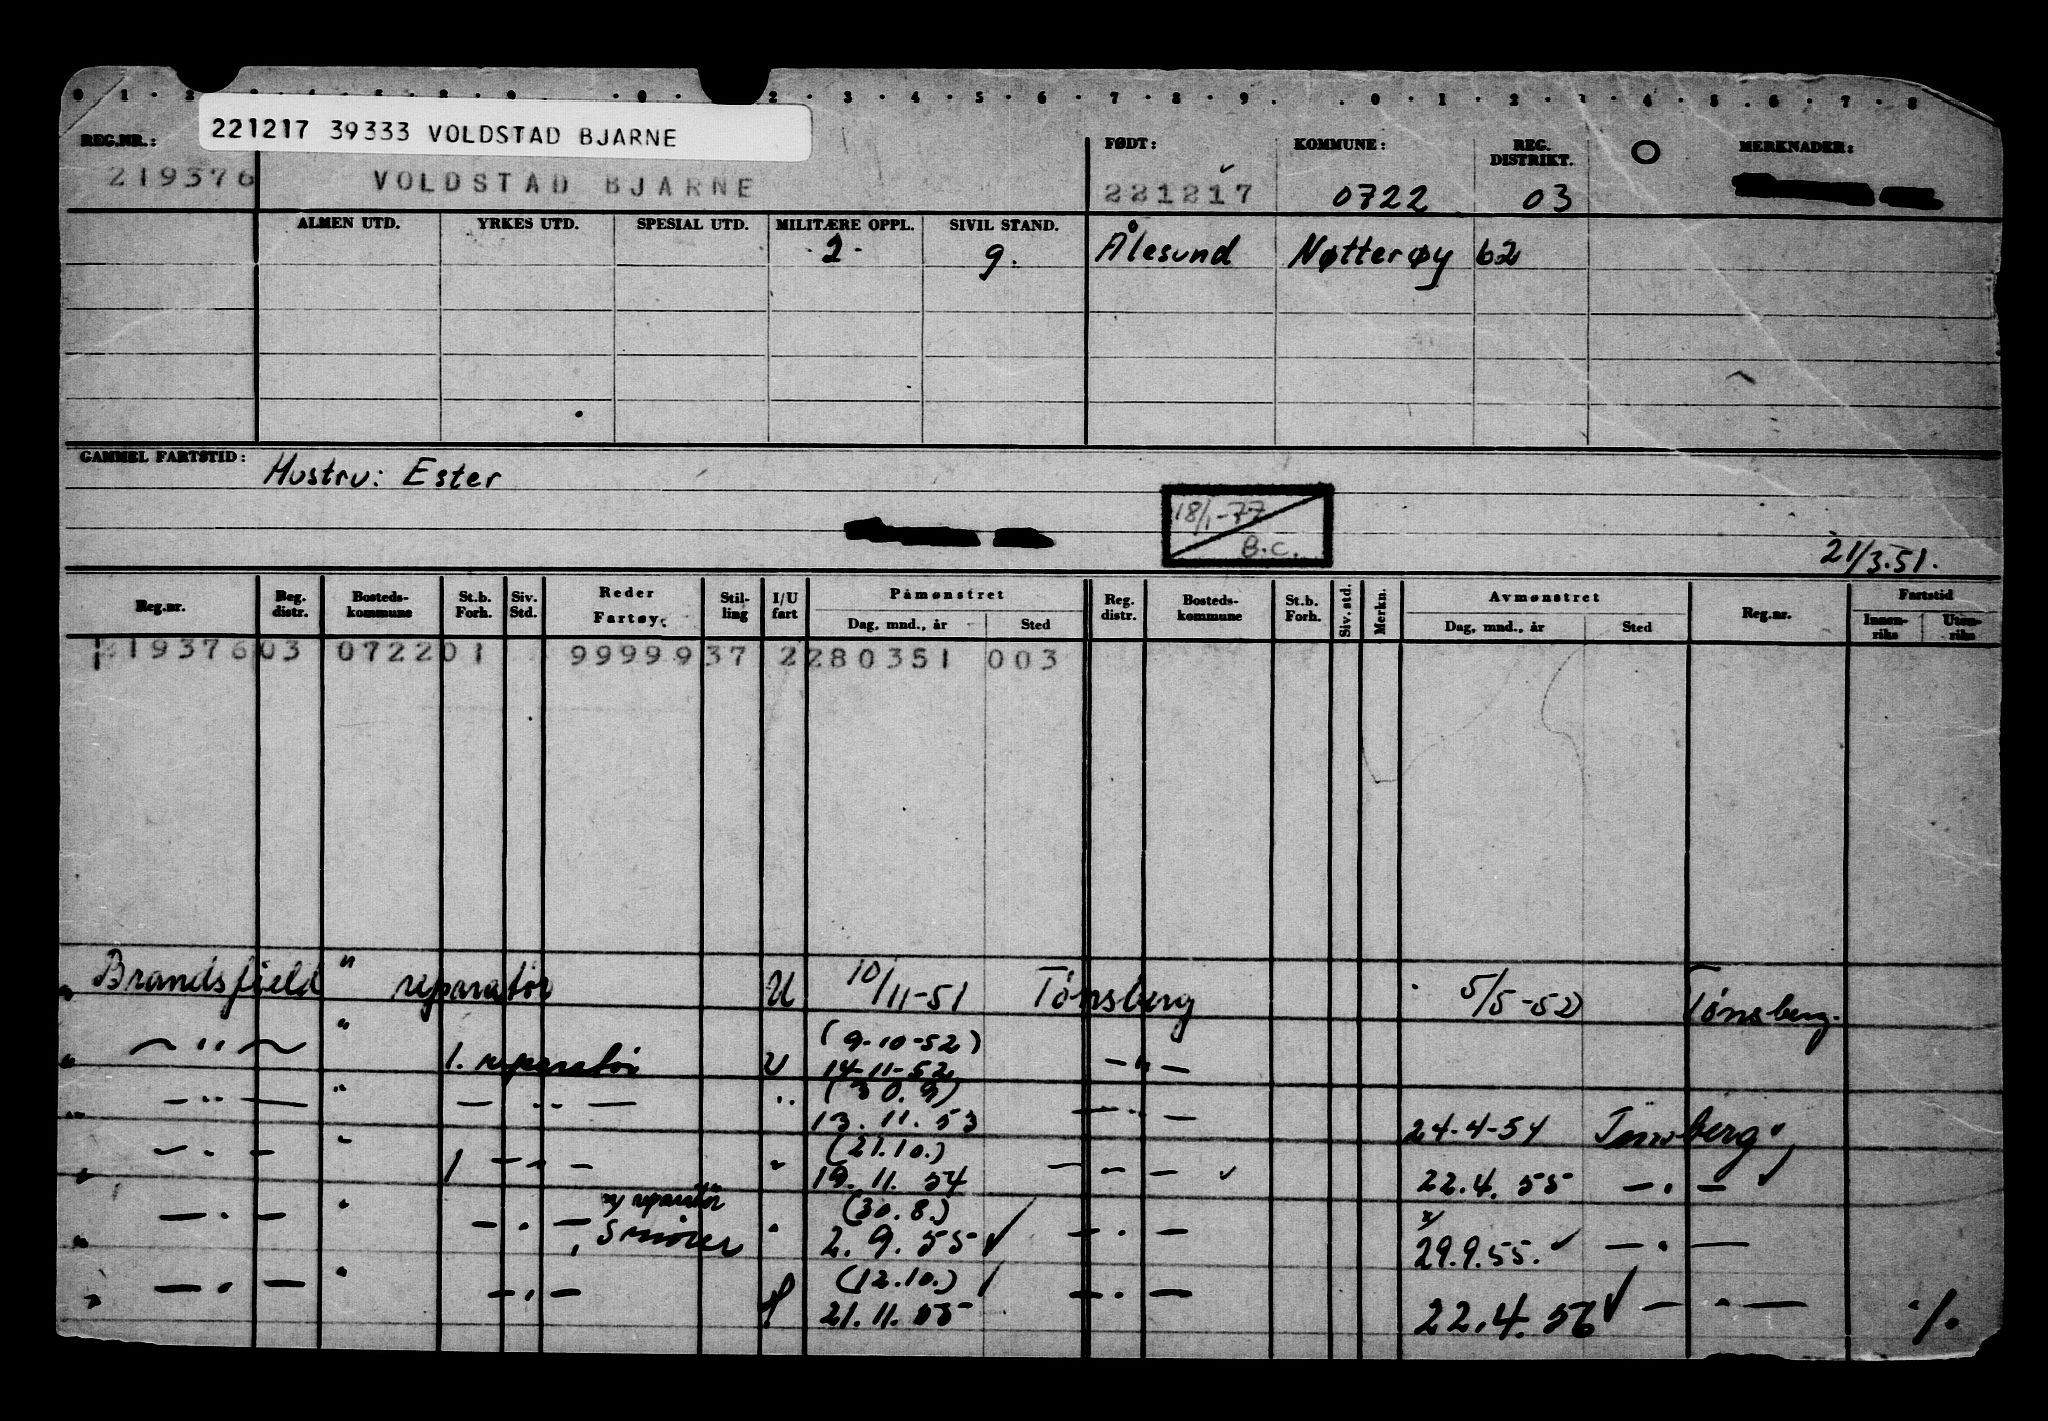 221217 39333 VOLDSTAD BJARNE
REG.NR.: FØDT: KOMMUNE: REG. DISTRIKT. O MERKNADER:
219376 VOLDSTAD BJARNE 221217 0722 03
ALMEN UTD. YRKES UTD. SPESIAL UTD. MILITÆRE OPPL. SIVIL STAND.
2 g. Ålesund Nøtterøy 62
GAMMEL FARTSTID: Hustru: Ester
18/1-77
B.C.
21/3.51.
Reg.nr. Reg. distr. Bosteds-kommune St.b. Forh. Siv. Std. Reder Fartøy. Stil-ling I/U fart Påmønstret Dag, mnd., år Sted Reg. distr. Bosteds-kommune St.b. Forh. Siv. std. Merkn. Avmønstret Dag, mnd., år Sted Reg.nr. Fartstid Innen-riks Uten-riks
219376 03 0722 01 99999 37 2 280351 003
" Brandsfjeld " reparatør U 10/11-51 Tønsberg 5/5-52 Tønsberg.
(9-10-52)
" — " — " 1. reparatør U 14-11-52 — " —
(30.9)
" — " — " — " — " 13.11.53 — " — 24-4-54 Tønsberg
(21.10.)
" — " — " 1 — " — " 19.11.54 — " — 22.4.55 — " —
reparatør (30.8.)
" — " — " — " — Smører " 2.9.55 — " — 29.9.55. — " —
(12.10.)
" — " — " — " — 21.11.55 — " — 22.4.56 — " — ./.